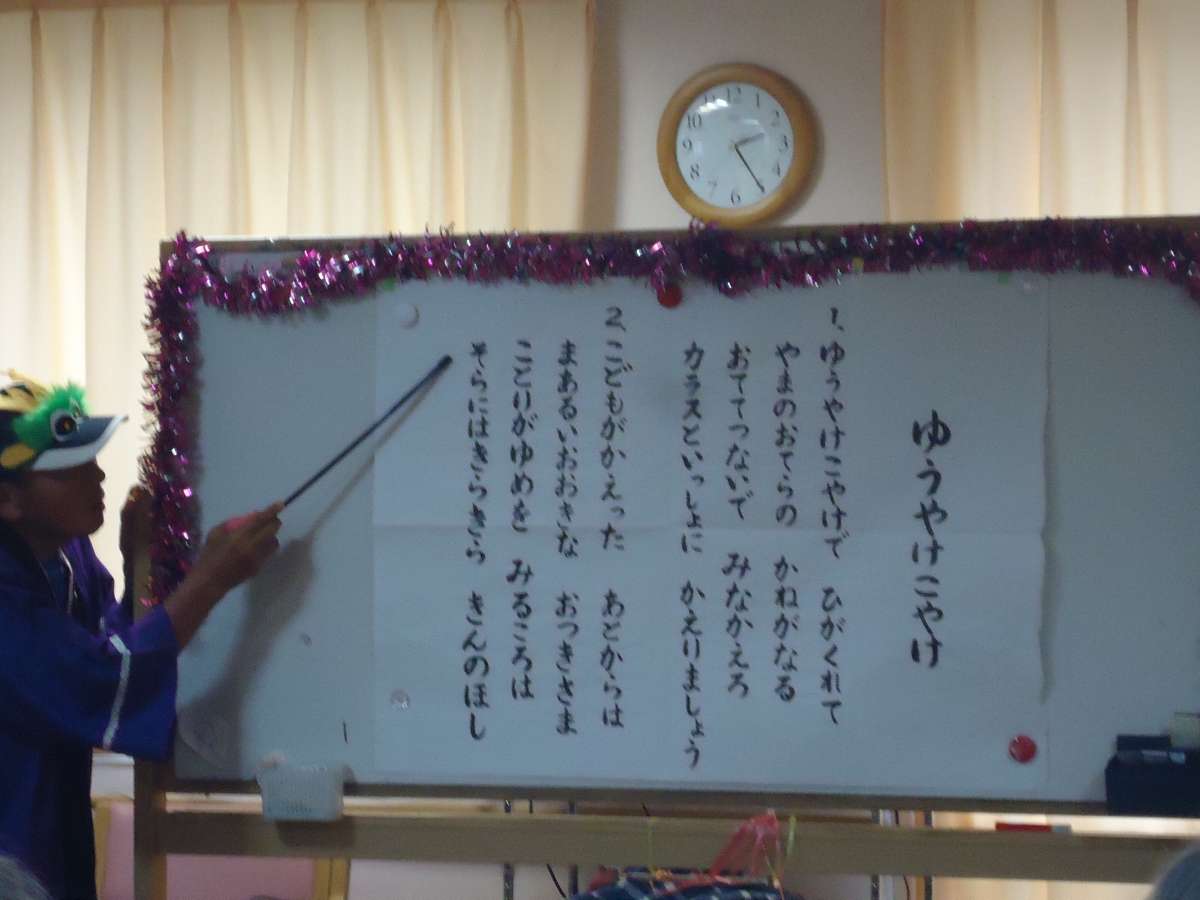 ゆうやけこやけ
1、ゆうやけこやけで ひがくれて
やまのおてらの かねがなる
おててつないで みなかえろ
カラスといっしょに かえりましょう
2、こどもがかえった あとからは
まあるいおおきな おつきさま
ことりがゆめを みるころは
そらにはきらきら きんのほし
12
1
2
3
4
6
7
8
9
10
11